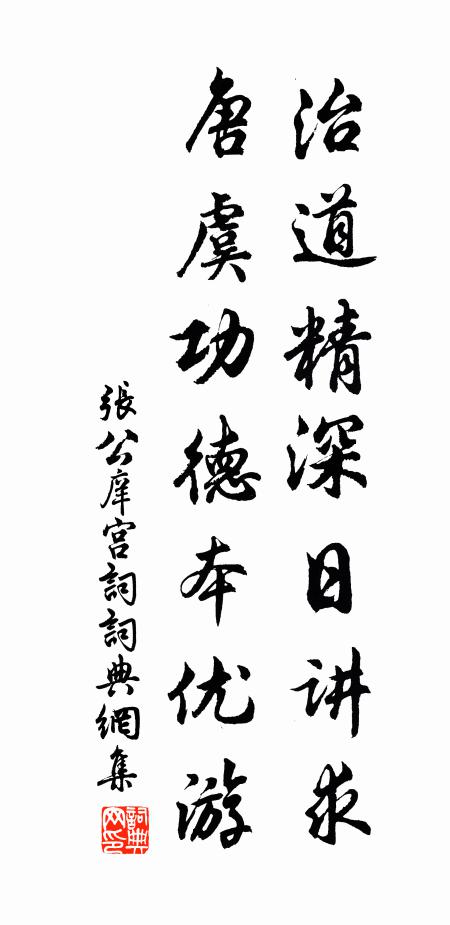 治道精深日讲求
唐虞功德本优游
張公庠宫詞詞典網集
詞典网印